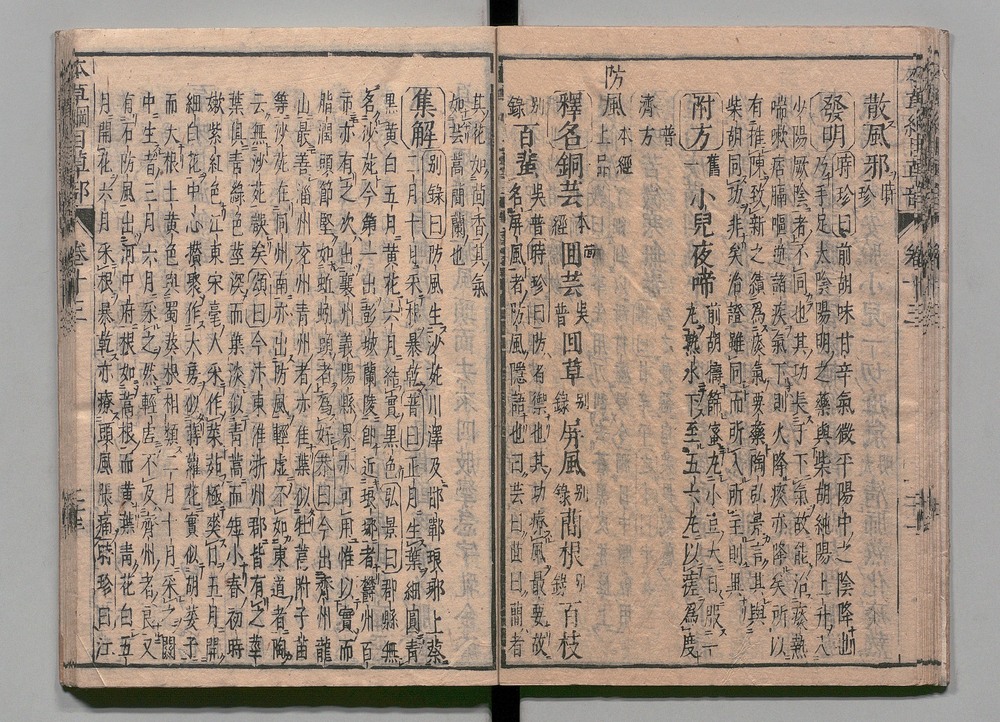 散風邪時珍
發明時珍曰前胡味甘辛氣微平陽中之陰降也
乃手足太陰陽明之藥與柴胡純陽上升入
少陽厥陰者不同也其功長于下氣故能治痰熱
喘嗽痞膈嘔逆諸疾氣下則火降痰亦降矣所以
有推陳致新之績為痰氣要藥陶弘景言其與
柴胡同功非矣治證雖同而所入所主則異
附方舊一小兒夜啼前胡擣篩蜜丸小豆大日服一丸熟水下至五六丸以瘥為度
普濟方
防風本經上品
釋名銅芸本經茴芸吳普茴草別錄屏風別錄蕑根別錄百枝
別錄百蜚吳普時珍曰防者禦也其功療風最要故
名屏風者防風隱語也曰芸曰茴曰蕑者
其花如茴香其氣
如芸蒿蕑蘭也
集解別錄曰防風生沙苑川澤及邯鄲琅琊上蔡
二月十月采根暴乾普曰正月生葉細圓青
黑黃白五月黃花六月結實黑色弘景曰郡縣無
名沙苑今第一出彭城蘭陵即近琅琊者鬱州百
市亦有之次出襄州義陽縣界亦可用惟以實而
脂潤頭節堅如蚯蚓頭者為好恭曰今出齊州龍
山最善淄州兗州青州者亦佳葉似牡蒿附子苗
等沙苑在同州南亦出防風輕虛不如東道者陶
云無沙苑誤矣頌曰今汴東淮浙州郡皆有之莖
葉俱青綠色莖深而葉淡似青蒿而短小春初時
嫩紫紅色江東宋亳人采作菜茹極爽口五月開
細白花中心攢聚作大房似蒔蘿花實似胡荽子
而大根土黃色與蜀葵根相類二月十月采之關
中生者三月六月采之然輕虛不及齊州者良又
有石防風出河中府根如蒿根而黃葉青花白五
月開花六月采根暴乾亦療頭風脹痛時珍曰江
本草綱目草部 卷十三